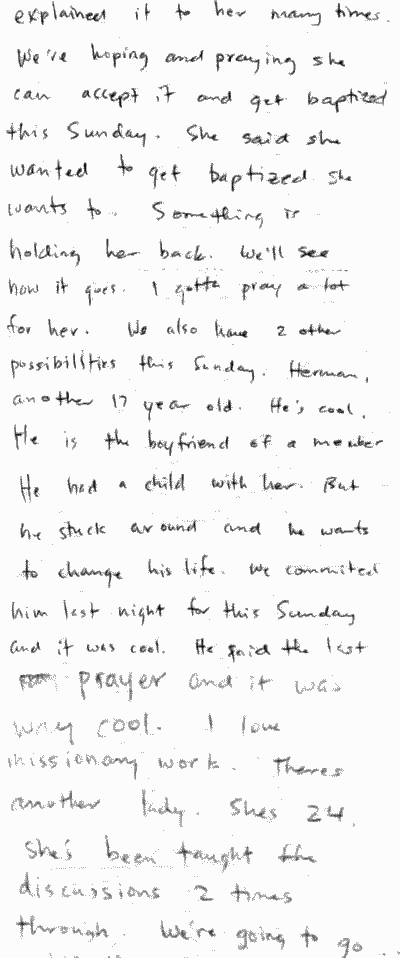 explained it to her many times.
We're hoping and praying she
can accept it and get baptized
this Sunday. She said she
wanted to get baptized she
wants to. Something is
holding her back. We'll see
how it goes. I gotta pray a lot
for her. We also have 2 other
possibilities this Sunday. Herman,
another 17 year old. He's cool.
He is the boyfriend of a member
He had a child with her. But
he stuck around and he wants
to change his life. We commited
him last night for this Sunday
and it was cool. He said the last
prayer and it was
way cool. I love
missionary work. Theres
another lady. Shes 24.
She's been taught the
discussions 2 times
through. We're going to go